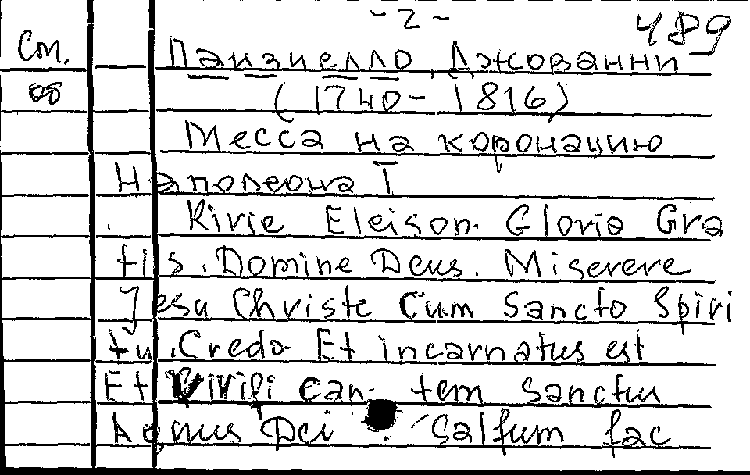 - 2 -
489
См.
Паизиелло, Джованни
(1740-1816)
Месса на коронацию
Наполеона I
Kirie Eleison. Gloria Gra
tis. Domine Deus. Miserere
Jesu Christe Cum Sancto Spiri
tu. Credo Et incarnatus est
Et Vivifi can- tem Sanctus
Agnus Dei. Salfum fac